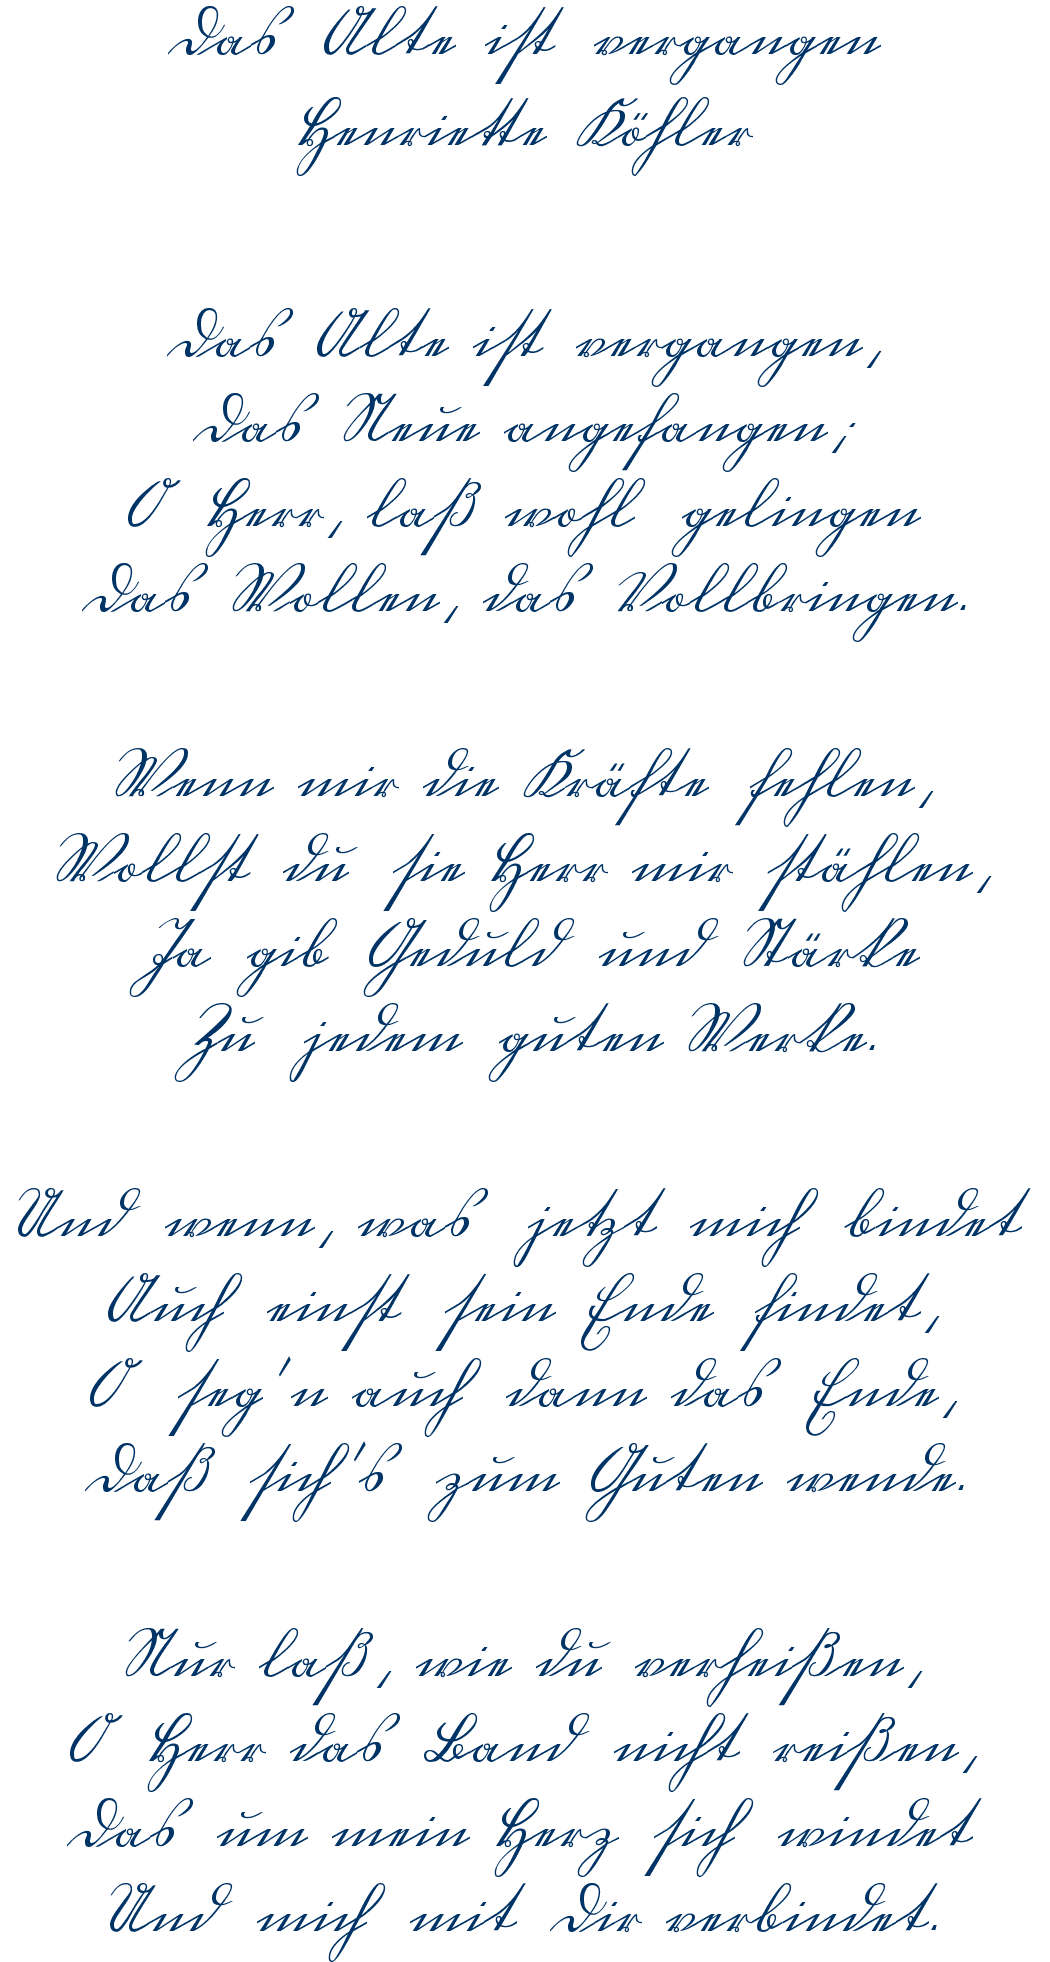 Das Alte ist vergangen
Henriette Köhler
Das Alte ist vergangen,
Das Neue angefangen;
O Herr, laß wohl gelingen
Das Wollen, das Vollbringen.
Wenn mir die Kräfte fehlen,
Wollst du sie Herr mir stählen,
Ja gib Geduld und Stärke
Zu jedem guten Werke.
Und wenn, was jetzt mich bindet
Auch einst sein Ende findet,
O seg'n auch dann das Ende,
Daß sich's zum Guten wende.
Nur laß, wie du verheißen,
O Herr das Band nicht reißen,
Das um mein Herz sich windet
Und mich mit Dir verbindet.